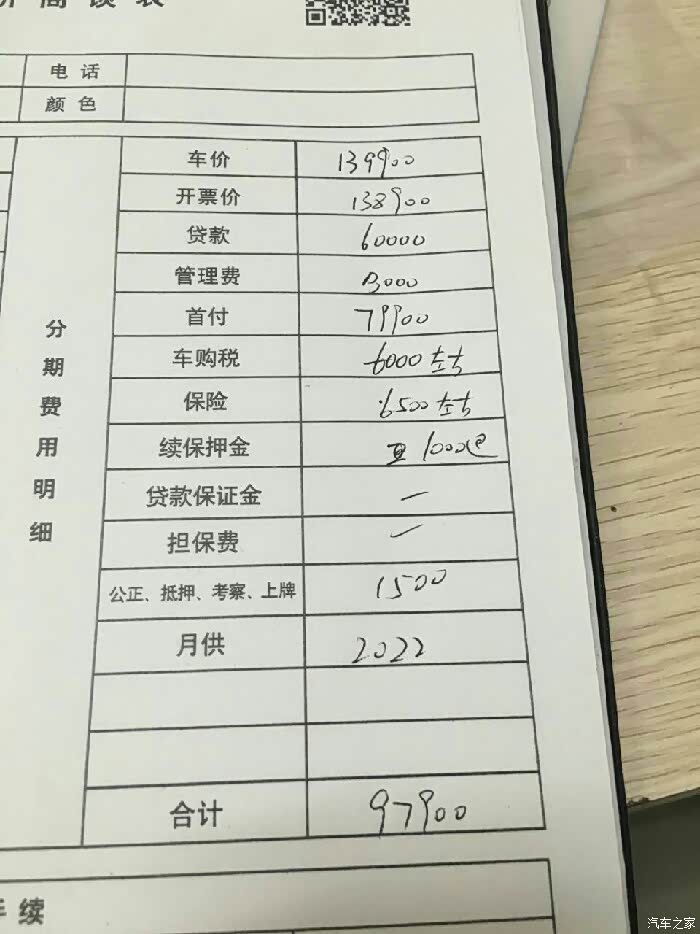 价商谈表
电话
颜色
分期费用明细
车价 139900
开票价 138900
贷款 60000
管理费 3000
首付 79900
车购税 6000左右
保险 6500左右
续保押金 1000
贷款保证金 —
担保费 —
公正、抵押、考察、上牌 1500
月供 2022
合计 97900
手续
汽车之家